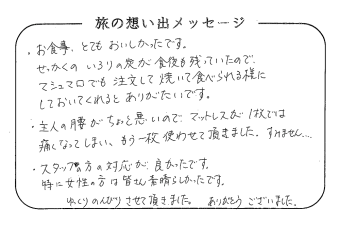 旅の想い出メッセージ
・お食事、とてもおいしかったです。
せっかくのいろりの炭が食後も残っていたので、
マシュマロでも注文して焼いて食べられる様に
しておいてくれるとありがたいです。
・主人の腰がちょと悪いので、マットレスが1枚では
痛くなってしまい、もう一枚使わせて頂きました。すみません…
・スタッフの方の対応が良かったです。
特に女性の方は皆さん素晴らしかったです。
ゆっくりのんびりさせて頂きました。ありがとうございました。